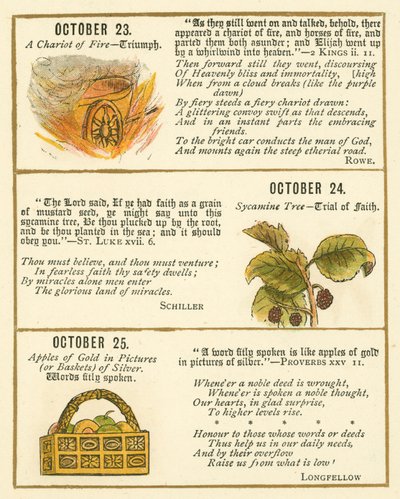 OCTOBER 23.
A Chariot of Fire—Triumph.
"As they still went on and talked, behold, there
appeared a chariot of fire, and horses of fire, and
parted them both asunder; and Elijah went up
by a whirlwind into heaven."—2 KINGS ii. 11.
Then forward still they went, discoursing
Of Heavenly bliss and immortality, (high
When from a cloud breaks (like the purple
dawn)
By fiery steeds a fiery chariot drawn:
A glittering convoy swift as that descends,
And in an instant parts the embracing
friends.
To the bright car conducts the man of God,
And mounts again the steep etherial road.
ROWE.
OCTOBER 24.
Sycamine Tree—Trial of Faith.
"The Lord said, If ye had faith as a grain
of mustard seed, ye might say unto this
sycamine tree, Be thou plucked up by the root,
and be thou planted in the sea; and it should
obey you."—ST. LUKE xvii. 6.
Thou must believe, and thou must venture;
In fearless faith thy safety dwells;
By miracles alone men enter
The glorious land of miracles.
SCHILLER
OCTOBER 25.
Apples of Gold in Pictures
(or Baskets) of Silver.
Words fitly spoken.
"A word fitly spoken is like apples of gold
in pictures of silver."—PROVERBS xxv 11.
Whene'er a noble deed is wrought,
Whene'er is spoken a noble thought,
Our hearts, in glad surprise,
To higher levels rise.
* * * * *
Honour to those whose words or deeds
Thus help us in our daily needs,
And by their overflow
Raise us from what is low!
LONGFELLOW